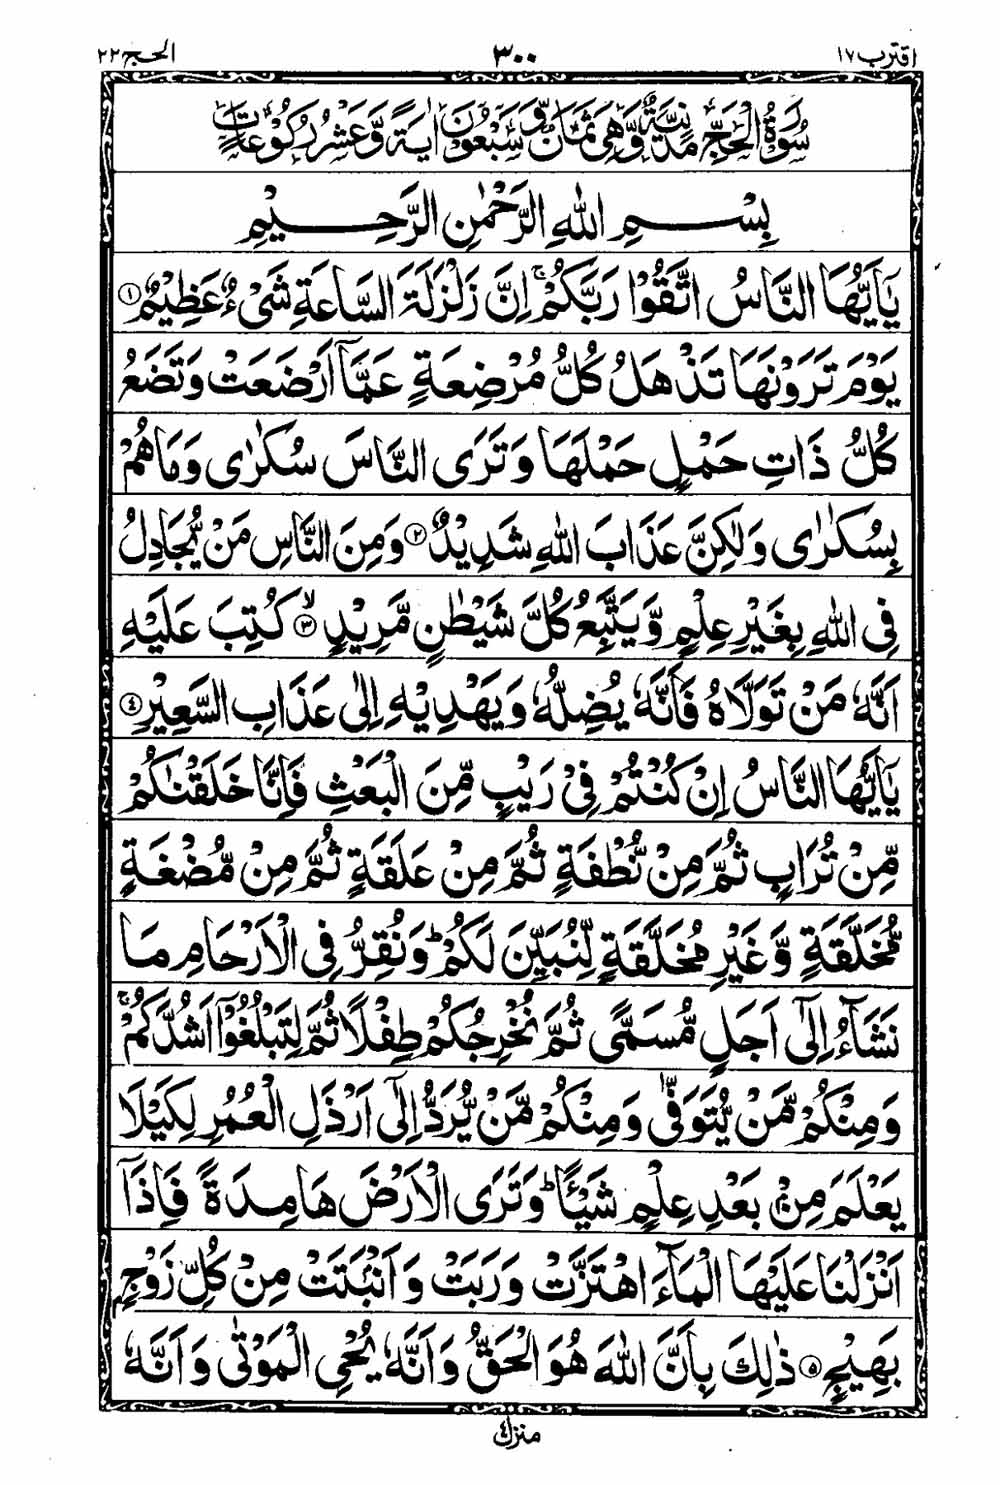 اقترب ١٧ ٣٠٠ الحج ٢٢
سُوْرَةُ الْحَجِّ مَدَنِيَّةٌ وَّهِيَ ثَمَانٌ وَّسَبْعُوْنَ اٰيَةً وَّعَشْرُ رُكُوْعَاتٍ
بِسْمِ اللّٰهِ الرَّحْمٰنِ الرَّحِيْمِ
يٰۤاَيُّهَا النَّاسُ اتَّقُوْا رَبَّكُمْ ۚ اِنَّ زَلْزَلَةَ السَّاعَةِ شَيْءٌ عَظِيْمٌ ﴿١﴾
يَوْمَ تَرَوْنَهَا تَذْهَلُ كُلُّ مُرْضِعَةٍ عَمَّاۤ اَرْضَعَتْ وَتَضَعُ
كُلُّ ذَاتِ حَمْلٍ حَمْلَهَا وَتَرَى النَّاسَ سُكٰرٰى وَمَا هُمْ
بِسُكٰرٰى وَلٰكِنَّ عَذَابَ اللّٰهِ شَدِيْدٌ ﴿٢﴾ وَمِنَ النَّاسِ مَنْ يُّجَادِلُ
فِى اللّٰهِ بِغَيْرِ عِلْمٍ وَّيَتَّبِعُ كُلَّ شَيْطٰنٍ مَّرِيْدٍ ۙ﴿٣﴾ كُتِبَ عَلَيْهِ
اَنَّهٗ مَنْ تَوَلَّاهُ فَاَنَّهٗ يُضِلُّهٗ وَيَهْدِيْهِ اِلٰى عَذَابِ السَّعِيْرِ ﴿٤﴾
يٰۤاَيُّهَا النَّاسُ اِنْ كُنْتُمْ فِيْ رَيْبٍ مِّنَ الْبَعْثِ فَاِنَّا خَلَقْنٰكُمْ
مِّنْ تُرَابٍ ثُمَّ مِنْ نُّطْفَةٍ ثُمَّ مِنْ عَلَقَةٍ ثُمَّ مِنْ مُّضْغَةٍ
مُّخَلَّقَةٍ وَّغَيْرِ مُخَلَّقَةٍ لِّنُبَيِّنَ لَكُمْ ؕ وَنُقِرُّ فِى الْاَرْحَامِ مَا
نَشَآءُ اِلٰۤى اَجَلٍ مُّسَمًّى ثُمَّ نُخْرِجُكُمْ طِفْلًا ثُمَّ لِتَبْلُغُوْۤا اَشُدَّكُمْ ۚ
وَمِنْكُمْ مَّنْ يُّتَوَفّٰى وَمِنْكُمْ مَّنْ يُّرَدُّ اِلٰۤى اَرْذَلِ الْعُمُرِ لِكَيْلَا
يَعْلَمَ مِنْۢ بَعْدِ عِلْمٍ شَيْـًٔا ؕ وَتَرَى الْاَرْضَ هَامِدَةً فَاِذَاۤ
اَنْزَلْنَا عَلَيْهَا الْمَآءَ اهْتَزَّتْ وَرَبَتْ وَاَنْۢبَتَتْ مِنْ كُلِّ زَوْجٍۭ
بَهِيْجٍ ﴿٥﴾ ذٰلِكَ بِاَنَّ اللّٰهَ هُوَ الْحَقُّ وَاَنَّهٗ يُحْيِ الْمَوْتٰى وَاَنَّهٗ
منزل ٤